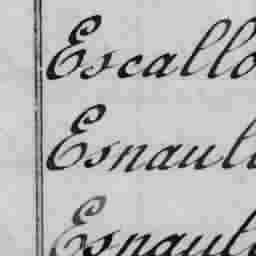 Escallo
Esnaul
Esnaul